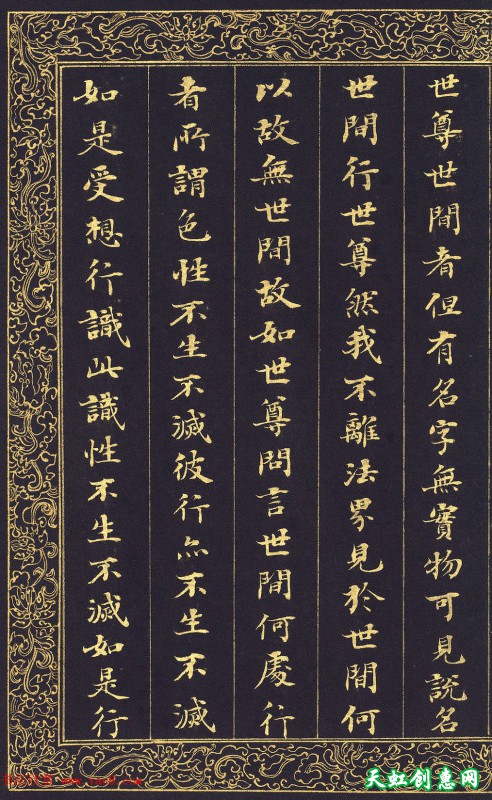 世尊世間者但有名字無實物可見說名
世間行世尊然我不離法界見於世間何
以故無世間故如世尊問言世間何處行
者所謂色性不生不滅彼行亦不生不滅
如是受想行識此識性不生不滅如是行
天虹创意网